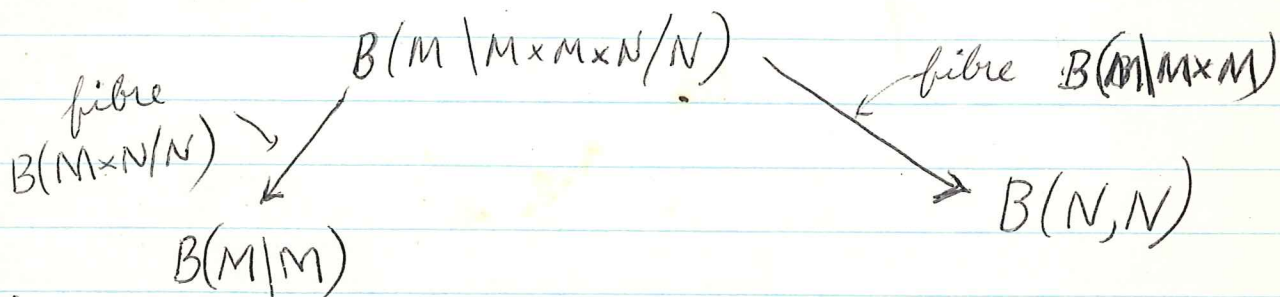 B(M\M×M×N/N)
fibre B(M\M×M)
fibre
B(M×N/N)
B(N,N)
B(M|M)